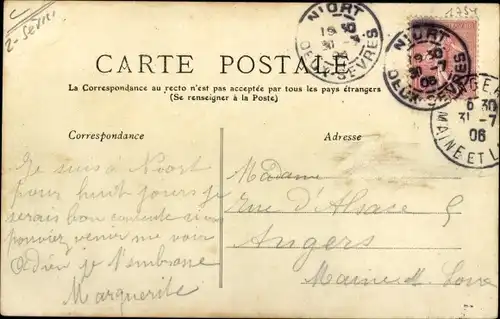 2-Sèvres
1754
NIORT
19 30
30-7
06
DEUX-SÈVRES
NIORT
19 30
30-7
06
DEUX-SÈVRES
CARTE POSTALE
La Correspondance au recto n'est pas acceptée par tous les pays étrangers
(Se renseigner à la Poste)
6 30
31-7
06
MAINE ET L
Correspondance
Adresse
Je suis à Niort
pour huit jours je
serais bon contente si vous
pouviez venir me voir
Adieu je t'embrasse
Marguerite
Madame
Rue d'Alsace 5
Angers
Maine et Loire